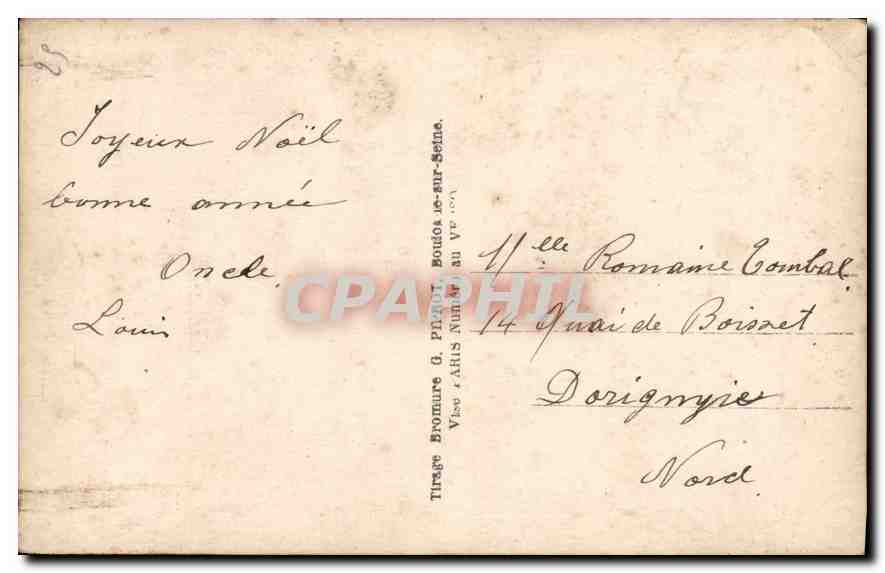 25
Joyeux Noël
bonne année
Oncle
Louis
Tirage Bromure G. PIPROT, Boulogne-sur-Seine.
Visé PARIS Numéro au VERSO
Mlle Romaine Tombal
14 Quai de Boisset
Dorignyies
Nord
CPAPHIL